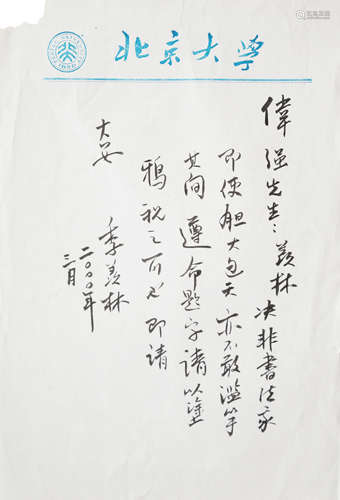 北京大学
偉强先生：羡林决非書法家
即使胆大包天亦不敢滥竽
其间 遵命题字请以塗
鸦視之可也 即请
大安
季羡林
二〇〇〇年
三月